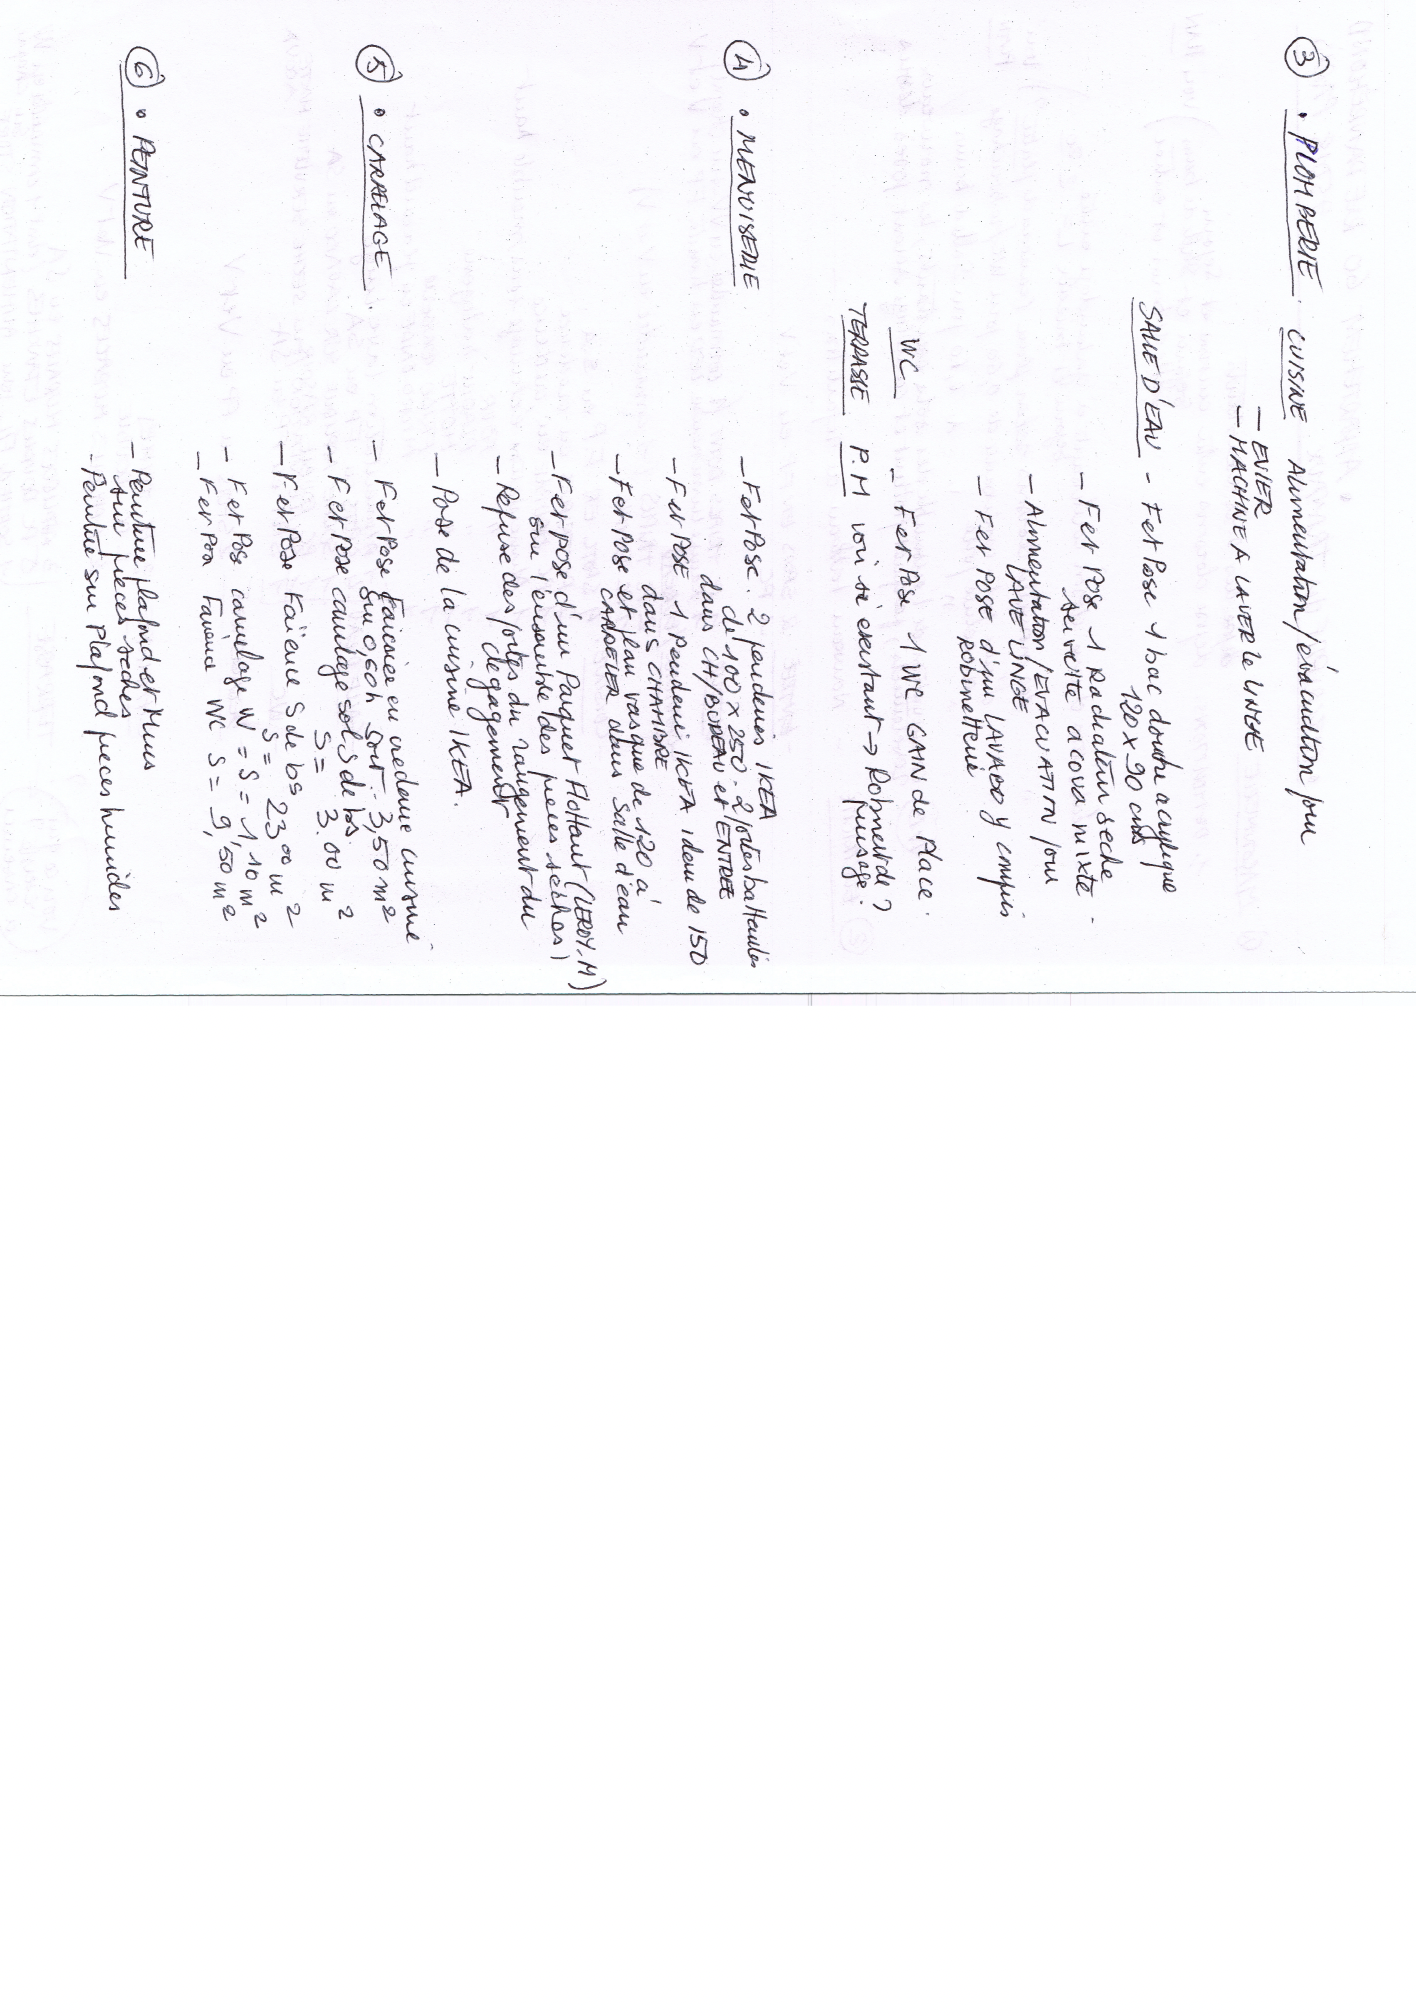 ③ • PLOMBERIE. CUISINE Alimentation/évacuation pour
— EVIER
— MACHINE A LAVER le LINGE
SALLE D'EAU - Fet Pose 1 bac douche acrylique
120 x 90 cms
- Fet Pose 1 Radiateur seche
serviette acova mixte -
- Alimentation/EVACUATION pour
LAVE LINGE
- Fet POSE d'un LAVABO y compris
Robinetterie
WC - Fet Pose 1 WC GAIN de Place.
TERRASSE P.M voir si existant → Robinet de ?
puisage.
④ • MENUISERIE - Fet Pose. 2 penderies IKEA
de 100 x 250. 2 portes battantes
dans CH/BUREAU et ENTREE
- Fet POSE 1 Penderie IKEA idem de 150
dans CHAMBRE
- Fet Pose et plan vasque de 120 à
dans Salle d'eau
- Fet pose d'un Parquet Flottant (LEROY.M)
sur l'ensemble des pieces sèches)
- Reprise des portes du rangement du
dégagement
- Pose de la cuisine IKEA.
⑤ • CARRELAGE. - Fet Pose Faïence en credence cuisine
sur 0,60h soit : 3,50 m2
- Fet Pose carrelage sol S de bs.
S = 3.00 m2
- Fet Pose Faïence S de bs
S = 23.00 m2
- Fet Pose carrelage W = S = 1,10 m2
- Fet Pose Faïence WC S = 9,50 m2
⑥ • PEINTURE - Peinture plafond et Murs
sur pièces sèches
- Peinture sur Plafond pieces humides